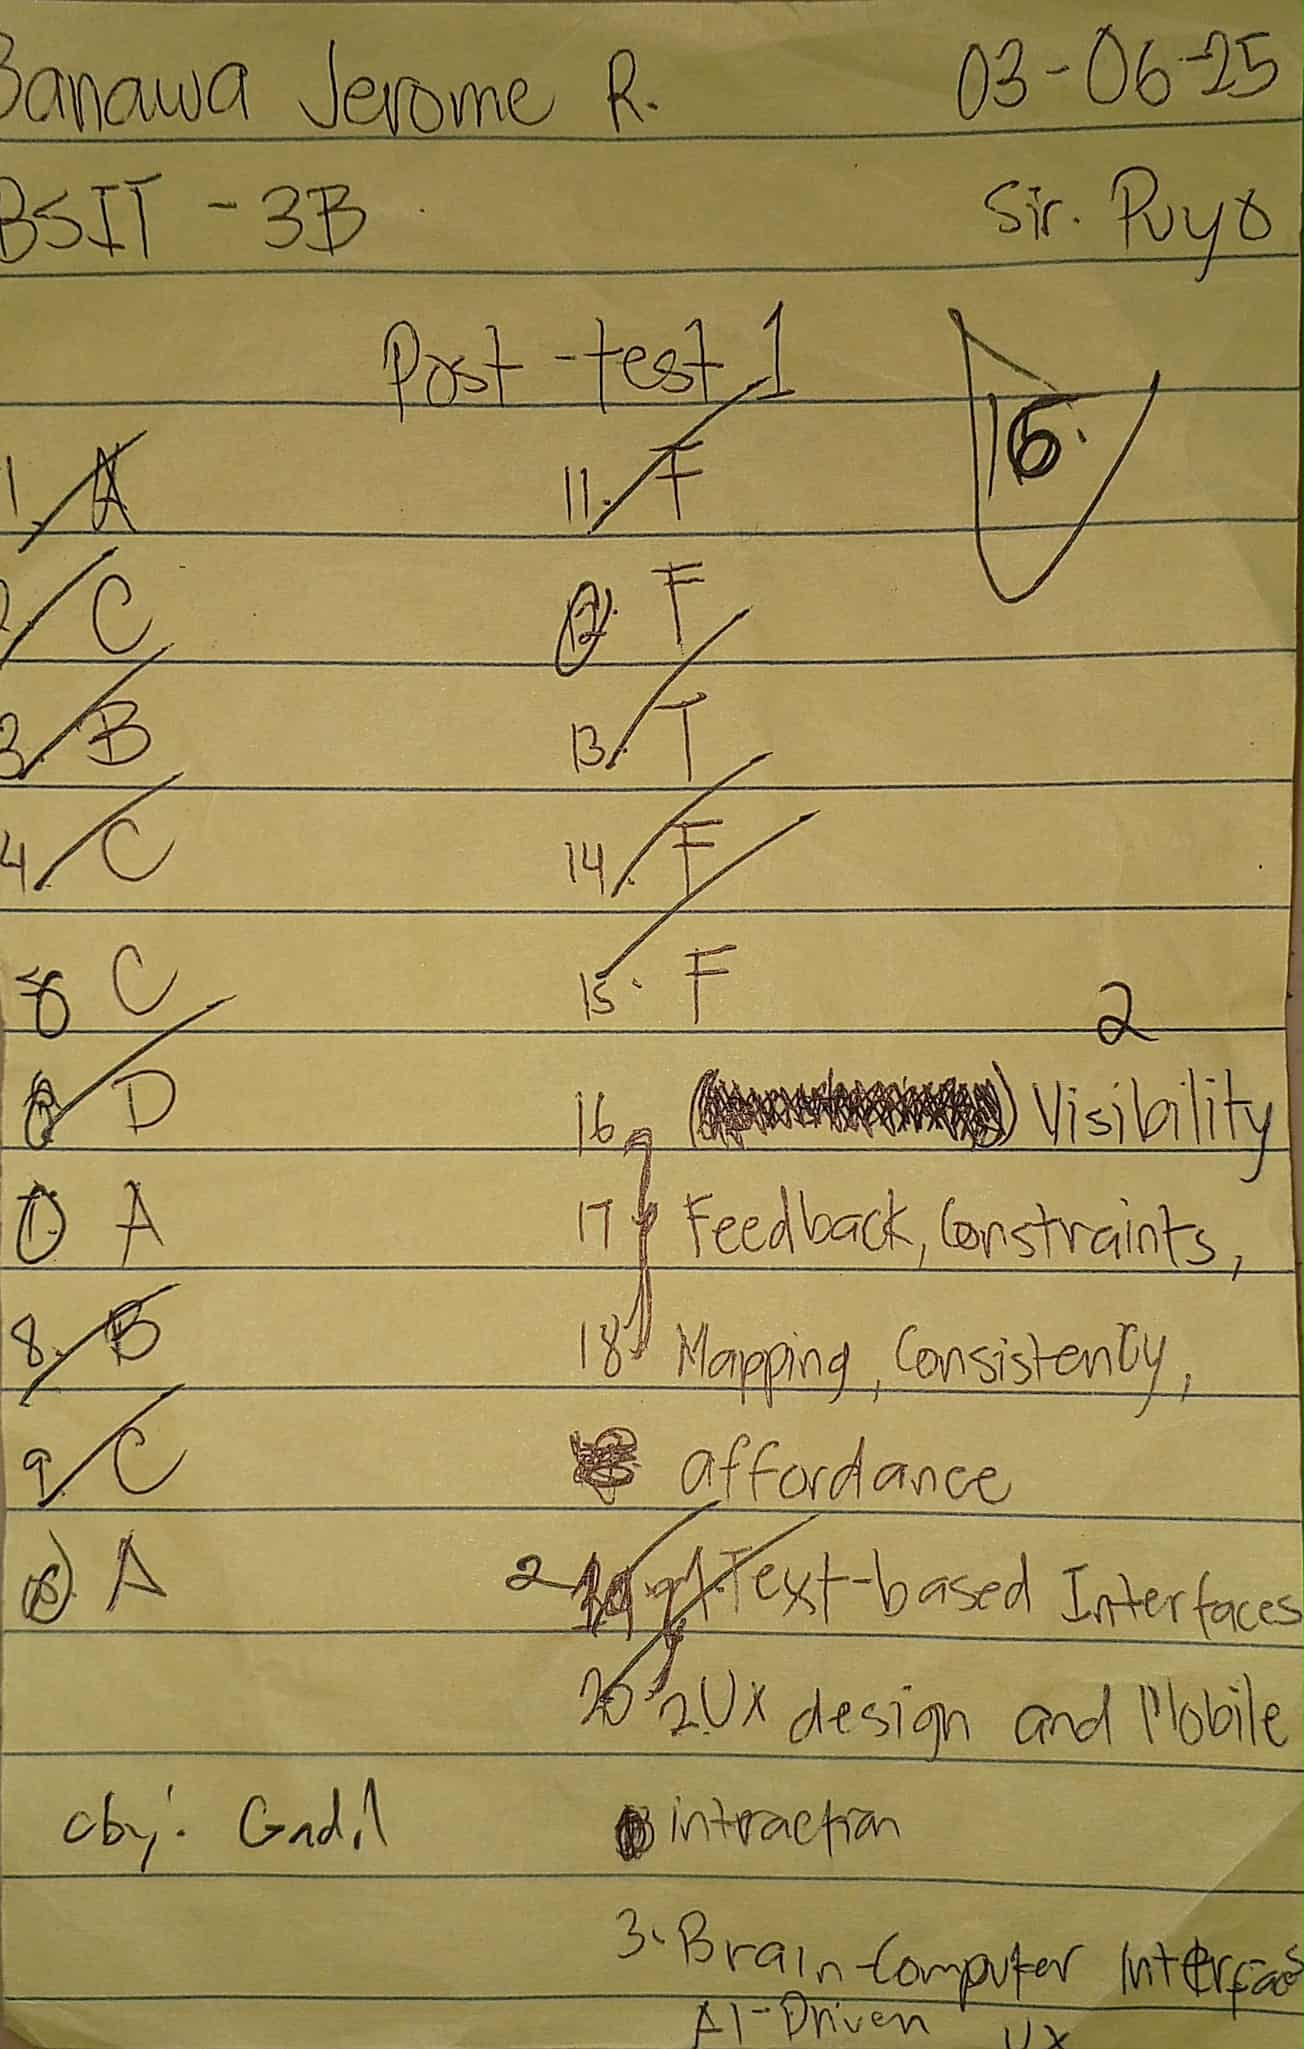 Banawa Jerome R. 03-06-25
BSIT - 3B Sir. Puyo
Post-test 1
16
1. A
2. C
3. B
4. C
5 C
D
7. A
8. B
9. C
10. A
11. F
12. F
13. T
14. F
15. F
2
16 Visibility
17 Feedback, Constraints,
18 Mapping, Consistency,
affordance
2 19. 1. Text-based Interfaces
20 2. UX design and Mobile
intraction
3. Brain-Computer Interfaces
AI-Driven UX
cby: Gadil